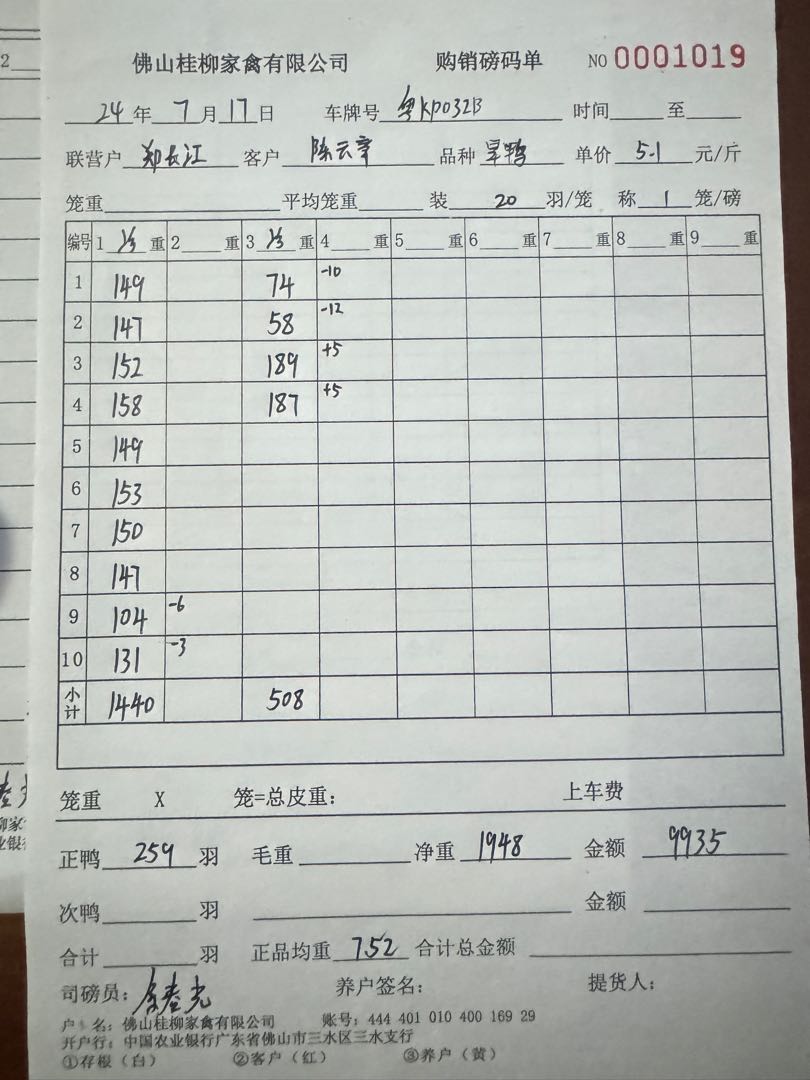 佛山桂柳家禽有限公司 购销磅码单 NO 0001019
24 年 7 月 17 日 车牌号 粤KP032B 时间 至
联营户 郑长江 客户 陈云章 品种 旱鸭 单价 5.1 元/斤
笼重 平均笼重 装 20 羽/笼 称 1 笼/磅
编号 1 重 2 重 3 重 4 重 5 重 6 重 7 重 8 重 9 重
1 149 74 -10
2 147 58 -12
3 152 189 +5
4 158 187 +5
5 149
6 153
7 150
8 147
9 104 -6
10 131 -3
小计 1440 508
笼重 X 笼=总皮重: 上车费
正鸭 259 羽 毛重 净重 1948 金额 9935
次鸭 羽 金额
合计 羽 正品均重 7.52 合计总金额
司磅员: 养户签名: 提货人:
户 名: 佛山桂柳家禽有限公司 账号: 444 401 010 400 169 29
开户行: 中国农业银行广东省佛山市三水区三水支行
①存根(白) ②客户(红) ③养户(黄)